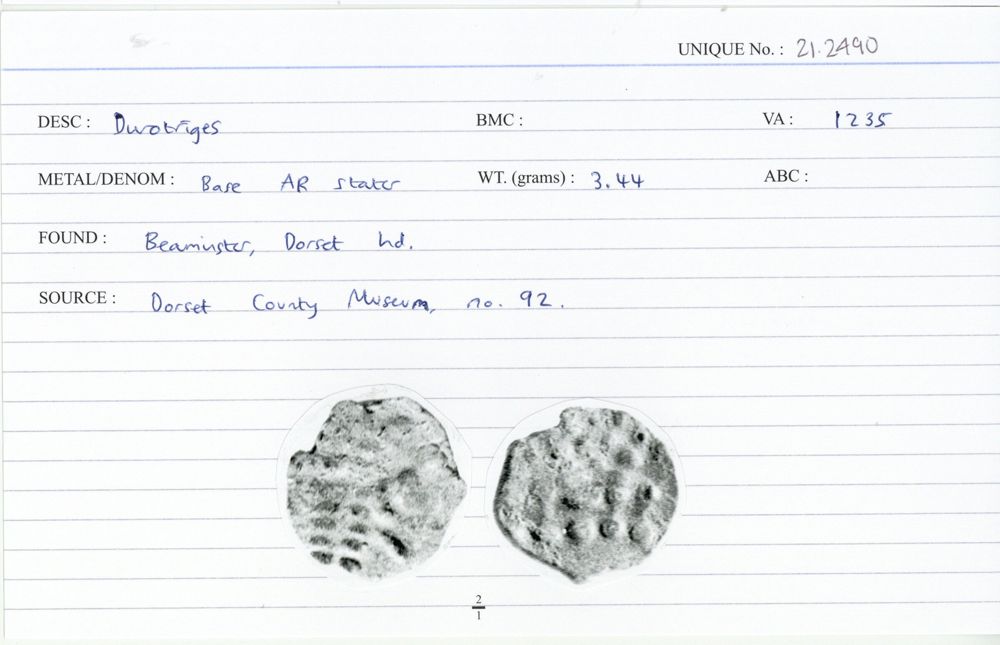 UNIQUE No. : 21.2490
DESC : Durotriges BMC : VA : 1235
METAL/DENOM : Base AR stater WT. (grams) : 3.44 ABC :
FOUND : Beaminster, Dorset hd.
SOURCE : Dorset County Museum, no. 92.
2
1